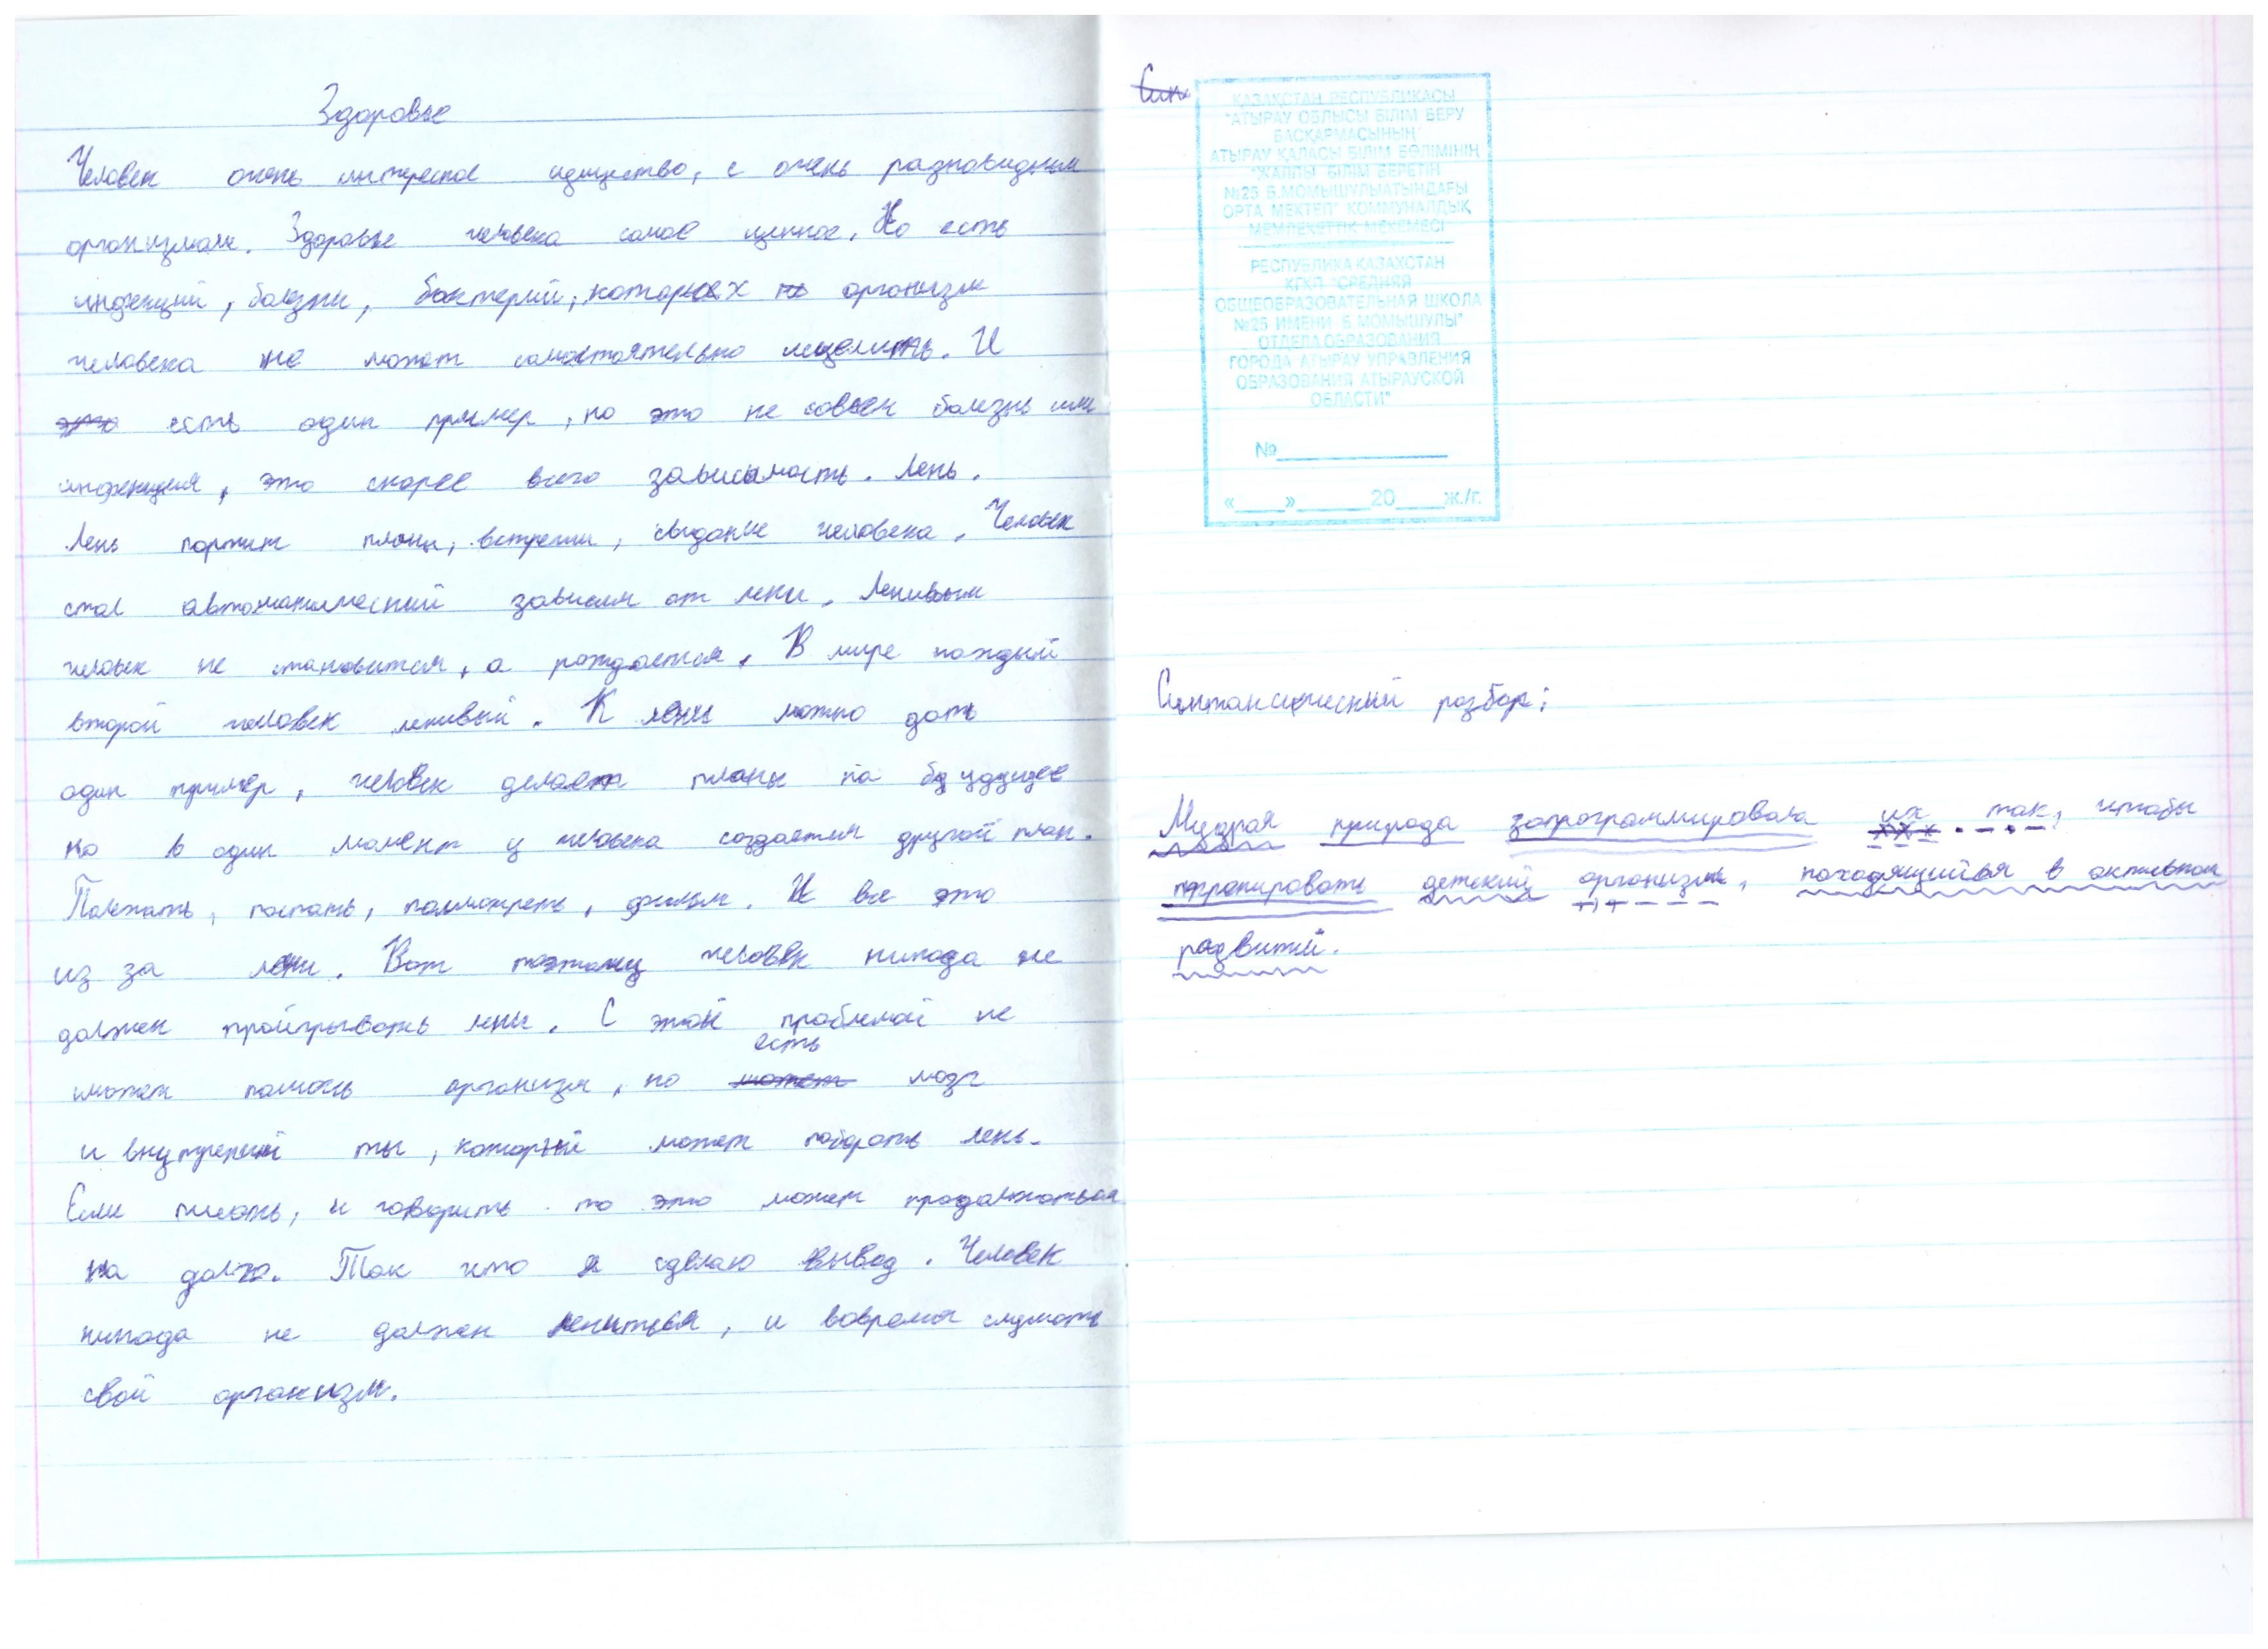 Здоровье
Человек очень интересное существо, с очень разновидным
организмам. Здоровье человека самое ценное. Но есть
инфекций, болезни, бактерий, которых организм
человека не может самостоятельно исцелить. И
это есть один пример, но это не совсем болезнь или
инфекция, это скорее всего зависимость. Лень.
Лень портит планы, встречи, свидание человека. Человек
стал автоматический зависим от лени. Ленивым
человек не становится, а рождается. В мире каждый
второй человек ленивый. К лени можно дать
один пример, человек делает планы на будущее
но в один момент у человека создается другой план.
Полежать, поспать, посмотреть, фильм. И все это
из за лени. Вот поэтому человек никогда не
должен пройгрывать лени. С этой проблемой не
есть
может помочь организм, но может мозг
и внутрений ты, который может побороть лень.
Если писать, и говорить то это может продолжаться
на долго. Так что я сделаю вывод. Человек
никогда не должен лениться, и вовремя слушать
свой организм.
Син
ҚАЗАҚСТАН РЕСПУБЛИКАСЫ
"АТЫРАУ ОБЛЫСЫ БІЛІМ БЕРУ
БАСҚАРМАСЫНЫҢ
АТЫРАУ ҚАЛАСЫ БІЛІМ БӨЛІМІНІҢ
"ЖАЛПЫ БІЛІМ БЕРЕТІН
№25 Б.МОМЫШҰЛЫ АТЫНДАҒЫ
ОРТА МЕКТЕП" КОММУНАЛДЫҚ
МЕМЛЕКЕТТІК МЕКЕМЕСІ
РЕСПУБЛИКА КАЗАХСТАН
КГКП "СРЕДНЯЯ
ОБЩЕОБРАЗОВАТЕЛЬНАЯ ШКОЛА
№25 ИМЕНИ Б.МОМЫШУЛЫ"
ОТДЕЛА ОБРАЗОВАНИЯ
ГОРОДА АТЫРАУ УПРАВЛЕНИЯ
ОБРАЗОВАНИЯ АТЫРАУСКОЙ
ОБЛАСТИ"
№
«____»______20____ж./г.
Синтаксический разбор:
Мудрая природа запрограммировала их так, чтобы
тренировать детский организм, находящийся в активном
развитий.